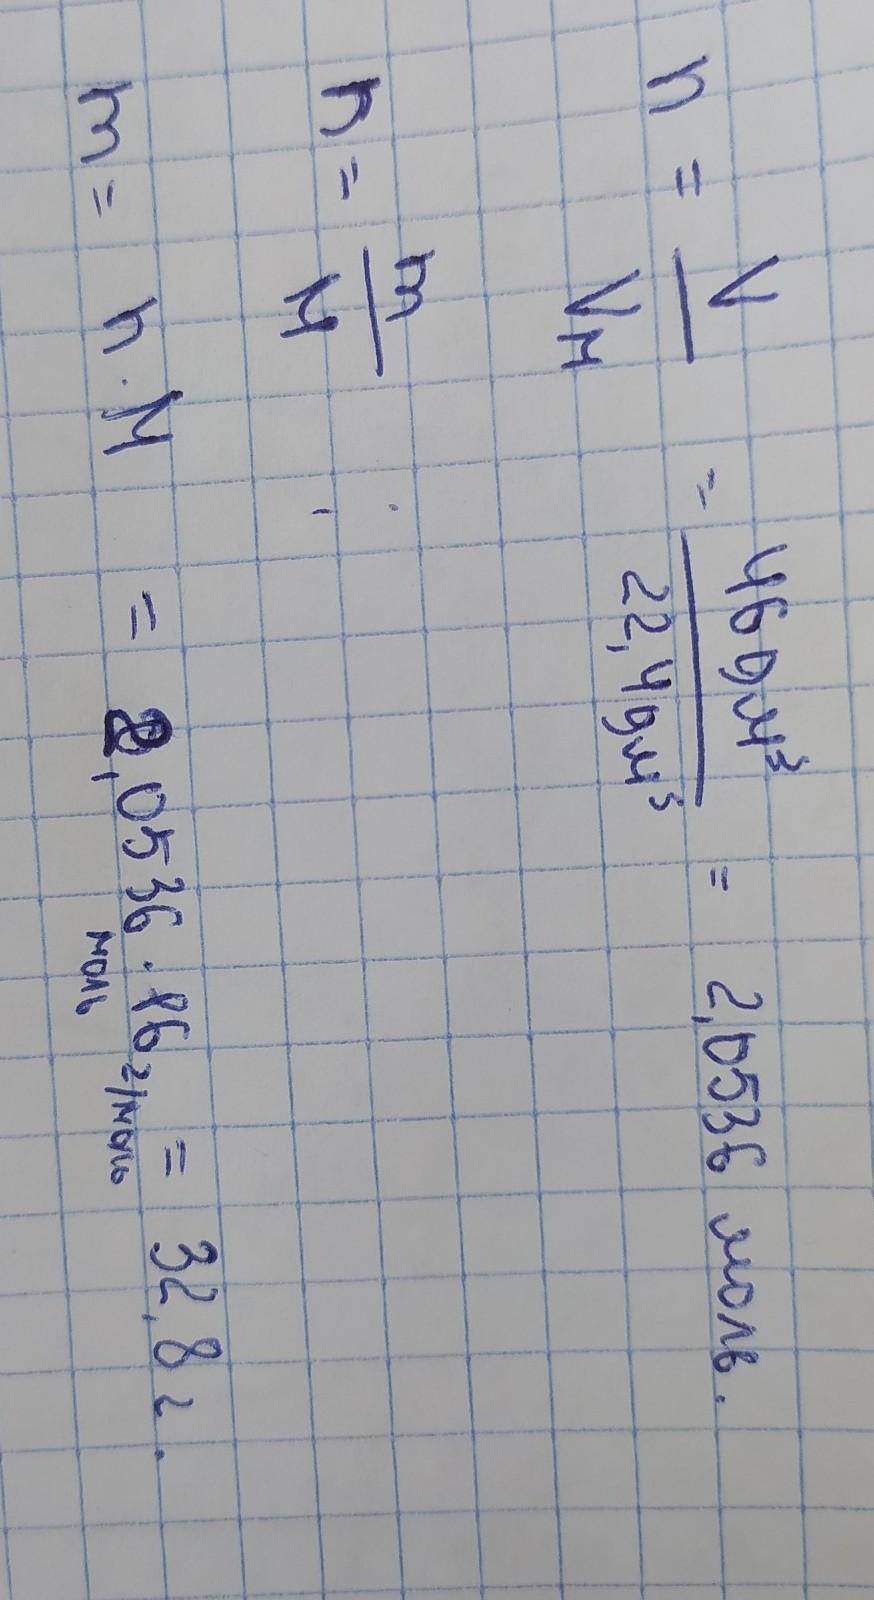 n = V / Vм = 46 дм³ / 22,4 дм³ = 2,0536 моль.
n = m / M
m = n · M = 2,0536 моль · 16 г/моль = 32,8 г.